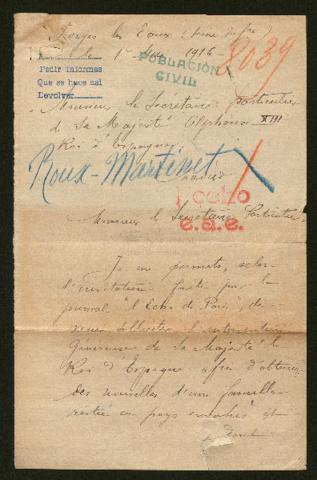 Forges les Eaux (Seine Inf re)
le 1 1916
POBLACIÓN
CIVIL
8039
Pedir informes
Que se hace así
Devolver
Monsieur le Secrétaire particulier
de Sa Majesté Alphonse XIII
Roi d'Espagne
Madrid
Roux-Martinet
e.a.e.
Monsieur le Secrétaire Particulier,
Je me permets, selon
l'invitation faite par le
journal l'Echo de Paris, de
venir solliciter l'intervention
Généreuse de Sa Majesté le
Roi d'Espagne afin d'obtenir
des nouvelles d'une famille
restée en pays envahis et
dont